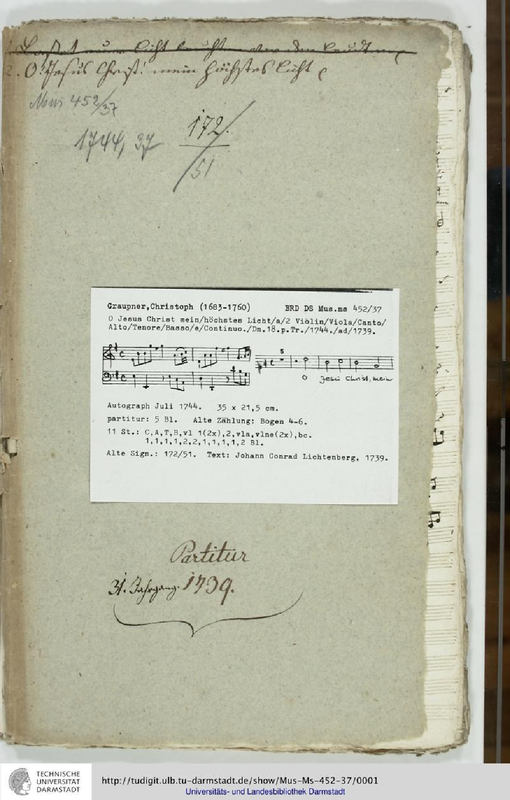 2. O Jesus Christ. mein höchstes Licht
Mus 452/37
1744, 37
172.
51
Graupner,Christoph (1683-1760) BRD DS Mus.ms 452/37
O Jesus Christ mein/höchstes Licht/a/2 Violin/Viola/Canto/
Alto/Tenore/Basso/e/Continuo./Dn.18.p.Tr./1744./ad/1739.
O Jesu Christ, mein
Autograph Juli 1744. 35 x 21,5 cm.
partitur: 5 Bl. Alte Zählung: Bogen 4-6.
11 St.: C,A,T,B,vl 1(2x),2,vla,vlne(2x),bc.
1,1,1,1,2,2,1,1,1,1,2 Bl.
Alte Sign.: 172/51. Text: Johann Conrad Lichtenberg, 1739.
Partitur
31. Jahrgang. 1739.
TECHNISCHE
UNIVERSITÄT
DARMSTADT
http://tudigit.ulb.tu-darmstadt.de/show/Mus-Ms-452-37/0001
Universitäts- und Landesbibliothek Darmstadt